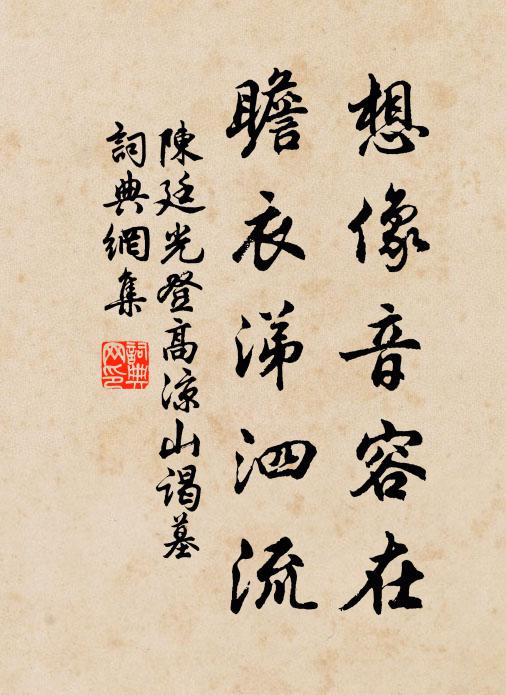 想像音容在
瞻衣涕泗流
陳廷光登高涼山謁墓
詞典網集
詞典网印